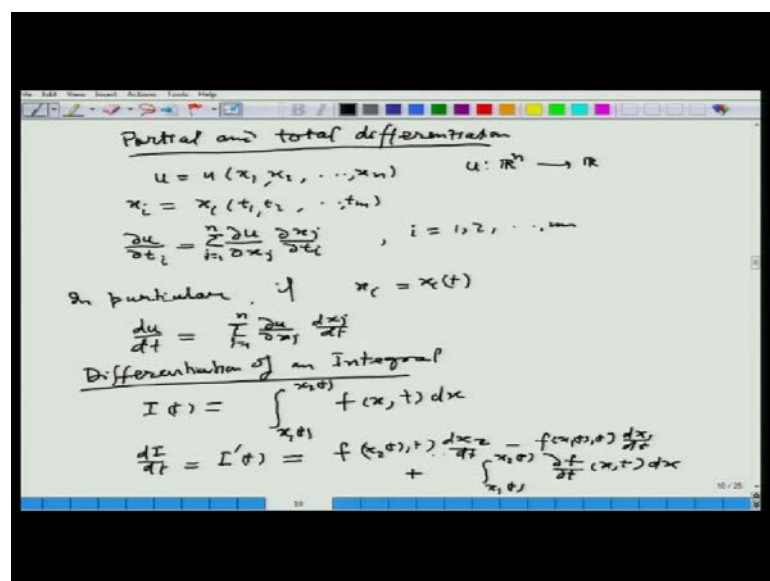 File Edit View Insert Actions Tools Help
Partial and total differentiation
u = u(x₁, x₂, ..., xₙ)    u: ℝⁿ → ℝ
xᵢ = xᵢ(t₁, t₂, ..., tₘ)
∂u/∂tᵢ = Σⱼ₌₁ⁿ ∂u/∂xⱼ ∂xⱼ/∂tᵢ , i = 1, 2, ..., m
In particular, if xᵢ = xᵢ(t)
du/dt = Σⱼ₌₁ⁿ ∂u/∂xⱼ dxⱼ/dt
Differentiation of an Integral
I(t) = ∫_{x₁(t)}^{x₂(t)} f(x, t) dx
dI/dt = I'(t) = f(x₂(t), t) dx₂/dt − f(x₁(t), t) dx₁/dt
+ ∫_{x₁(t)}^{x₂(t)} ∂f/∂t (x, t) dx
10 / 25
10